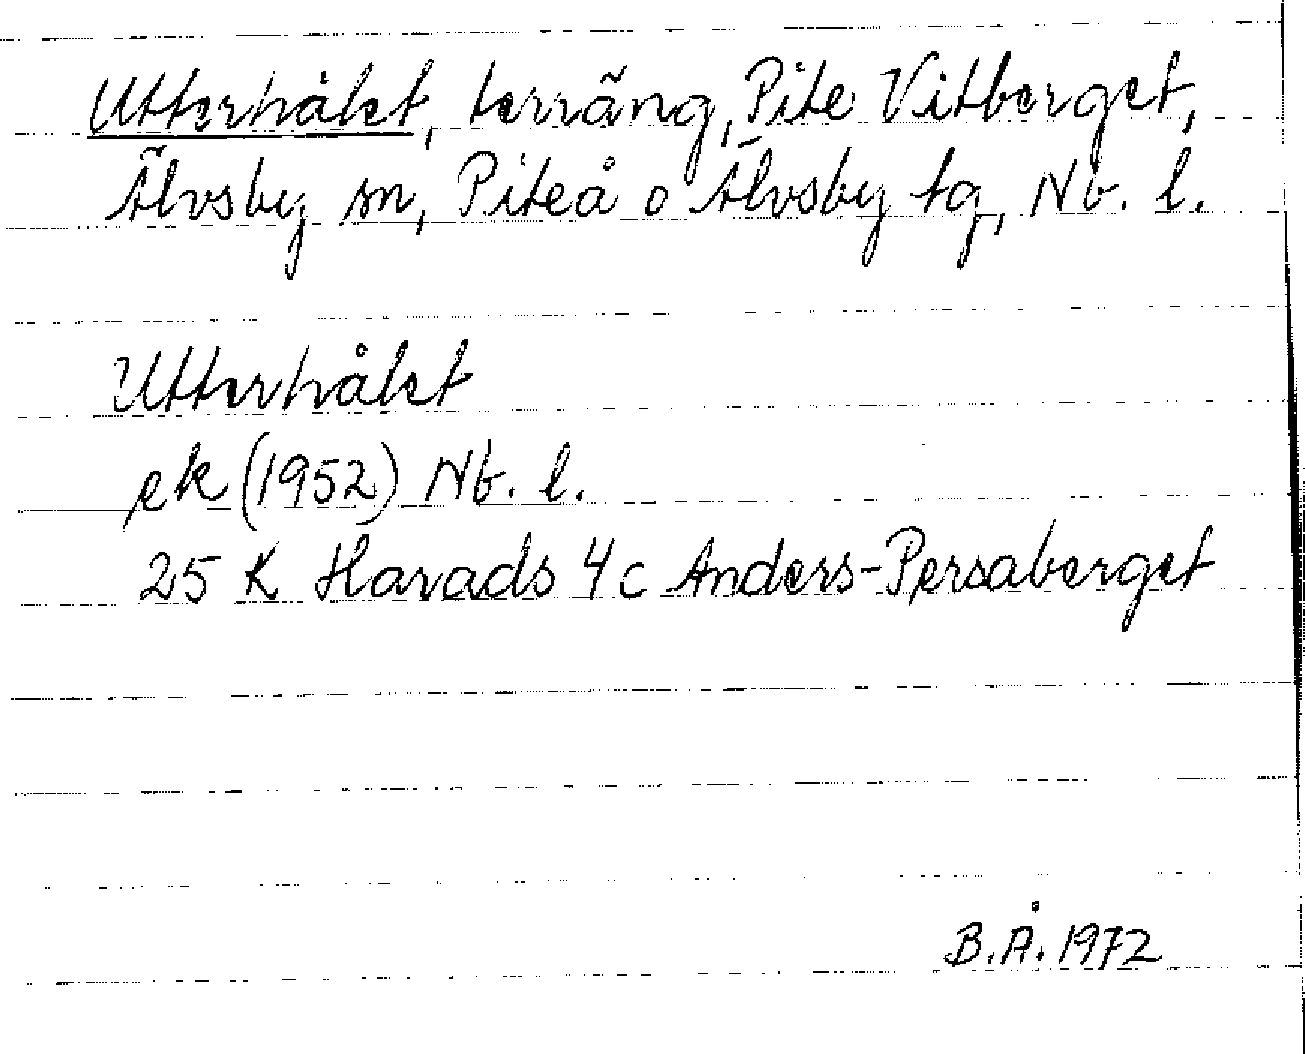 Utterhålet, terräng, Pite Vitberget,
Älvsby sn, Piteå o Älvsby tg, Nb. l.
Utterhålet
ek (1952) Nb. l.
25 K Harads 4c Anders-Persaberget
B.Å. 1972